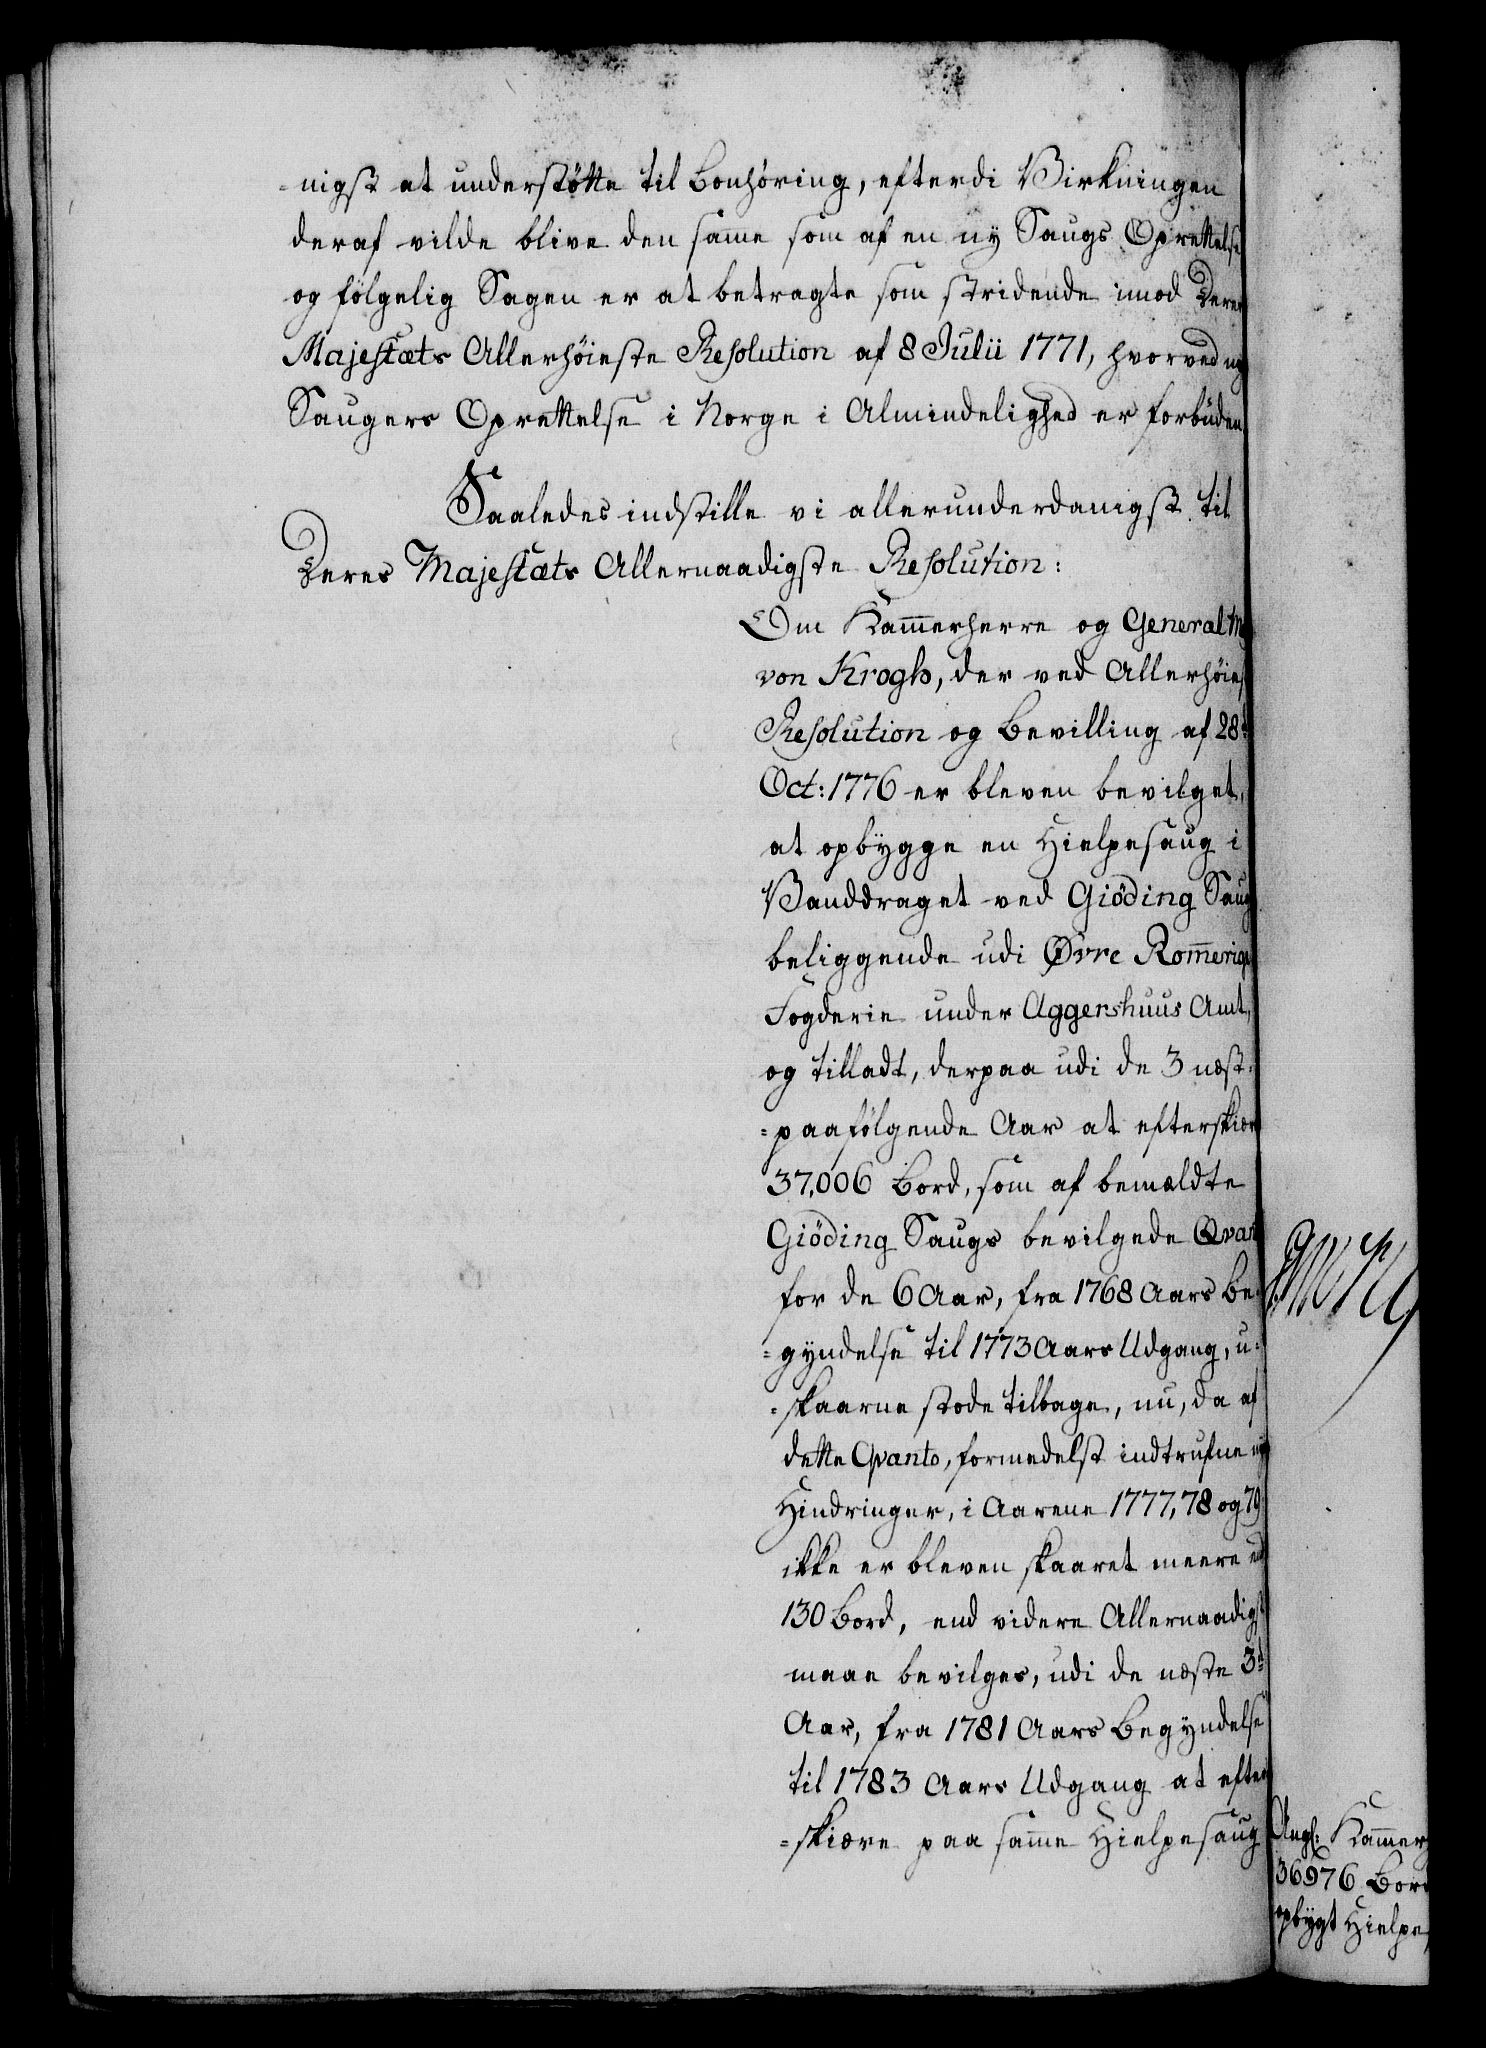 =nigst at understøtte til Bonhøring, efterdi Virkningen
deraf vilde blive den samme som af en ny Saugs Oprettelse
og følgelig Sagen er at betragte som stridende imod Deres
Majestæts Allerhøieste Resolution af 8 Julii 1771, hvorved
Saugers Oprettelse i Norge i Almindelighed er forbuden
Saaledes indstille vi allerunderdanigst til
Deres Majestæts Allernaadigste Resolution:
Om Kammerherre og General
von Krogh, der ved Allerhøies
Resolution og Bevilling af 28
Oct: 1776 er bleven bevilget,
at opbygge en Hielpesaug i
Vanddraget ved Giöding Saug
beliggende udi Øvre Romerig
Fogderie under Aggershuus Amt,
og tilladt, derpaa udi de 3 næst=
=paafølgende Aar at efterskiær
37,006 Bord, som af bemældte
Giöding Saugs bevilgede Qvan
for de 6 Aar, fra 1768 Aars Be=
=gyndelse til 1773 Aars Udgang, u=
=skaarne stode tilbage, nu, da af
dette Qvanto, formedelst indtrufne
Hindringer, i Aarene 1777, 78 og 79
ikke er bleven skaaret meere end
130 Bord, end videre Allernaadigst
maae bevilges, udi de næste 3
Aar, fra 1781 Aars Begyndelse
til 1783 Aars Udgang at efter
=skiære paa samme Hielpesaug
Kammer
36976 Bord
opbygt Hielpe